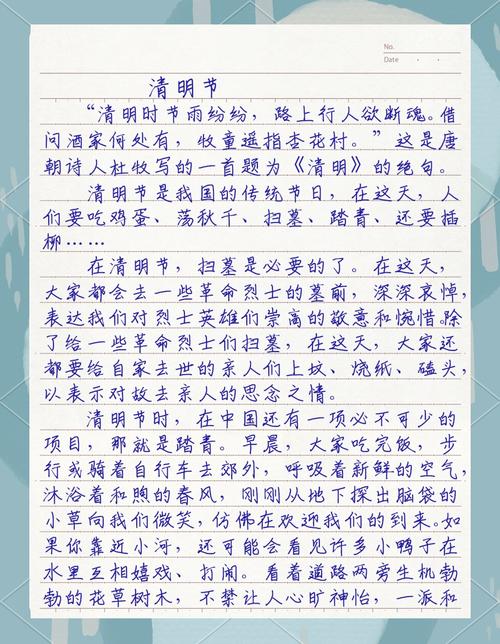 No.
Date
清明节
“清明时节雨纷纷，路上行人欲断魂。借
问酒家何处有，牧童遥指杏花村。”这是唐
朝诗人杜牧写的一首题为《清明》的绝句。
清明节是我国的传统节日，在这天，人
们要吃鸡蛋、荡秋千、扫墓、踏青、还要插
柳……
在清明节，扫墓是必要的了。在这天，
大家都会去一些革命烈士的墓前，深深哀悼，
表达我们对烈士英雄们崇高的敬意和惋惜。除
了给一些革命烈士们扫墓，在这天，大家还
都要给自家去世的亲人们上坟、烧纸、磕头，
以表示对故去亲人的思念之情。
清明节时，在中国还有一项必不可少的
项目，那就是踏青。早晨，大家吃完饭，步
行或骑着自行车去郊外，呼吸着新鲜的空气，
沐浴着和煦的春风，刚刚从地下探出脑袋的
小草向我们微笑，仿佛在欢迎我们的到来。如
果你靠近小河，还可能会看见许多小鸭子在
水里互相嬉戏、打闹。看着道路两旁生机勃
勃的花草树木，不禁让人心旷神怡，一派和